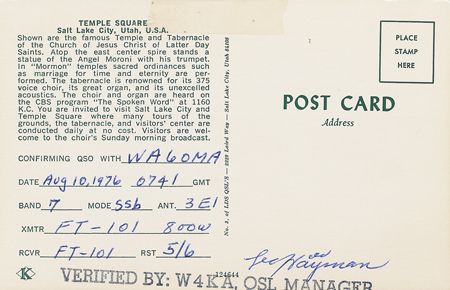 TEMPLE SQUARE
Salt Lake City, Utah, U.S.A.
Shown are the famous Temple and Tabernacle
of the Church of Jesus Christ of Latter Day
Saints. Atop the east center spire stands a
statue of the Angel Moroni with his trumpet.
In "Mormon" temples sacred ordinances such
as marriage for time and eternity are per-
formed. The tabernacle is renowned for its 375
voice choir, its great organ, and its unexcelled
acoustics. The choir and organ are heard on
the CBS program "The Spoken Word" at 1160
K.C. You are invited to visit Salt Lake City and
Temple Square where many tours of the
grounds, the tabernacle, and visitors' center are
conducted daily at no cost. Visitors are wel-
come to the choir's Sunday morning broadcast.
CONFIRMING QSO WITH WA6OMA
DATE Aug 10, 1976 0741 GMT
BAND 7 MODE SSb ANT. 3 El
XMTR FT-101 800W
RCVR FT-101 RST 5/6
K
VERIFIED BY: W4KA, QSL MANAGER
124644
No. 2, of LDS QSL'S — Laird Way — Salt Lake City, Utah
PLACE
STAMP
HERE
POST CARD
Address
Hayman